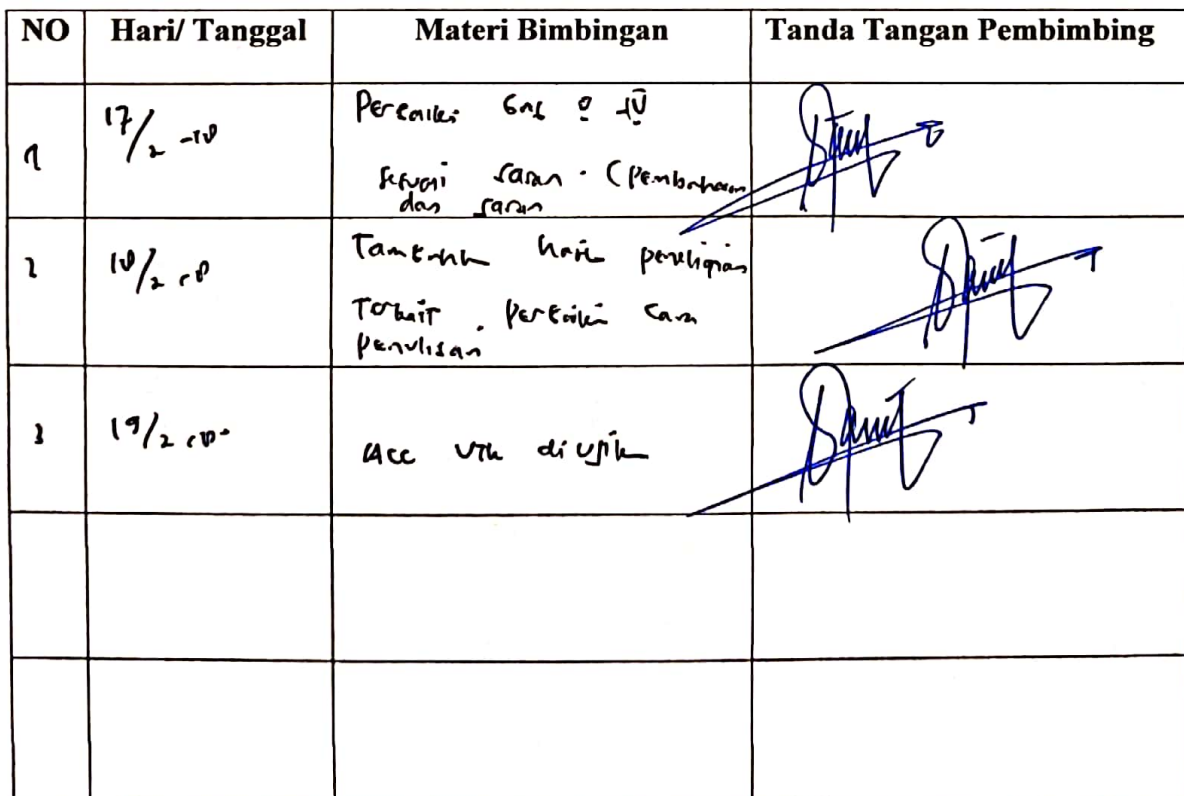 NO Hari/ Tanggal Materi Bimbingan Tanda Tangan Pembimbing
1 17/2 -18 Perbaiki Bab IV
sesuai saran. (Pembahasan
dan saran
2 18/2 -18 Tambahkan hasil penelitian
Terkait. perbaiki cara
penulisan.
3 19/2 -18 Acc utk diujikan